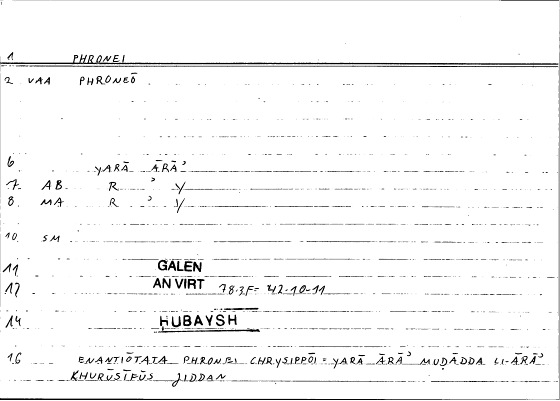 1 PHRONEI
2 VAA PHRONEŌ
6 YARĀ ĀRĀʾ
7. AB R ʾ Y
8. MA R ʾ Y
10. SM
11 GALEN
12 AN VIRT 78.3F = 42.10-11
14 ḤUBAYSH
16 ENANTIŌTATA PHRONEI CHRYSIPPŌI = YARĀ ĀRĀʾ MUḌĀDDA LI-ĀRĀʾ
KHURŪSĪFŪS JIDDAN